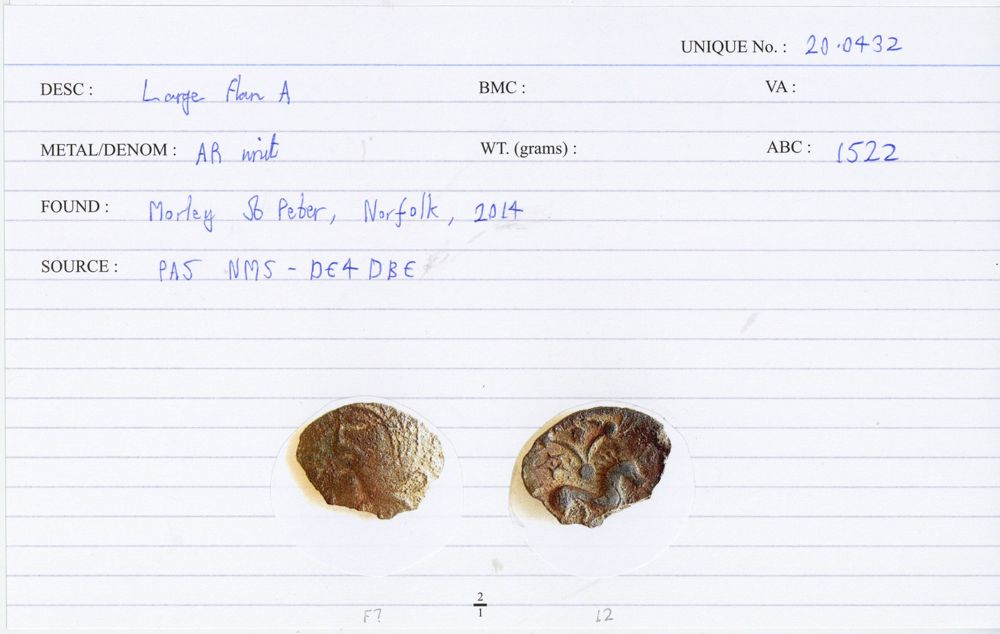 UNIQUE No. : 20·0432
DESC : Large flan A BMC : VA :
METAL/DENOM : AR unit WT. (grams) : ABC : 1522
FOUND : Morley St Peter, Norfolk, 2014
SOURCE : PAS NMS - DE4DBE
2
1
F? 12